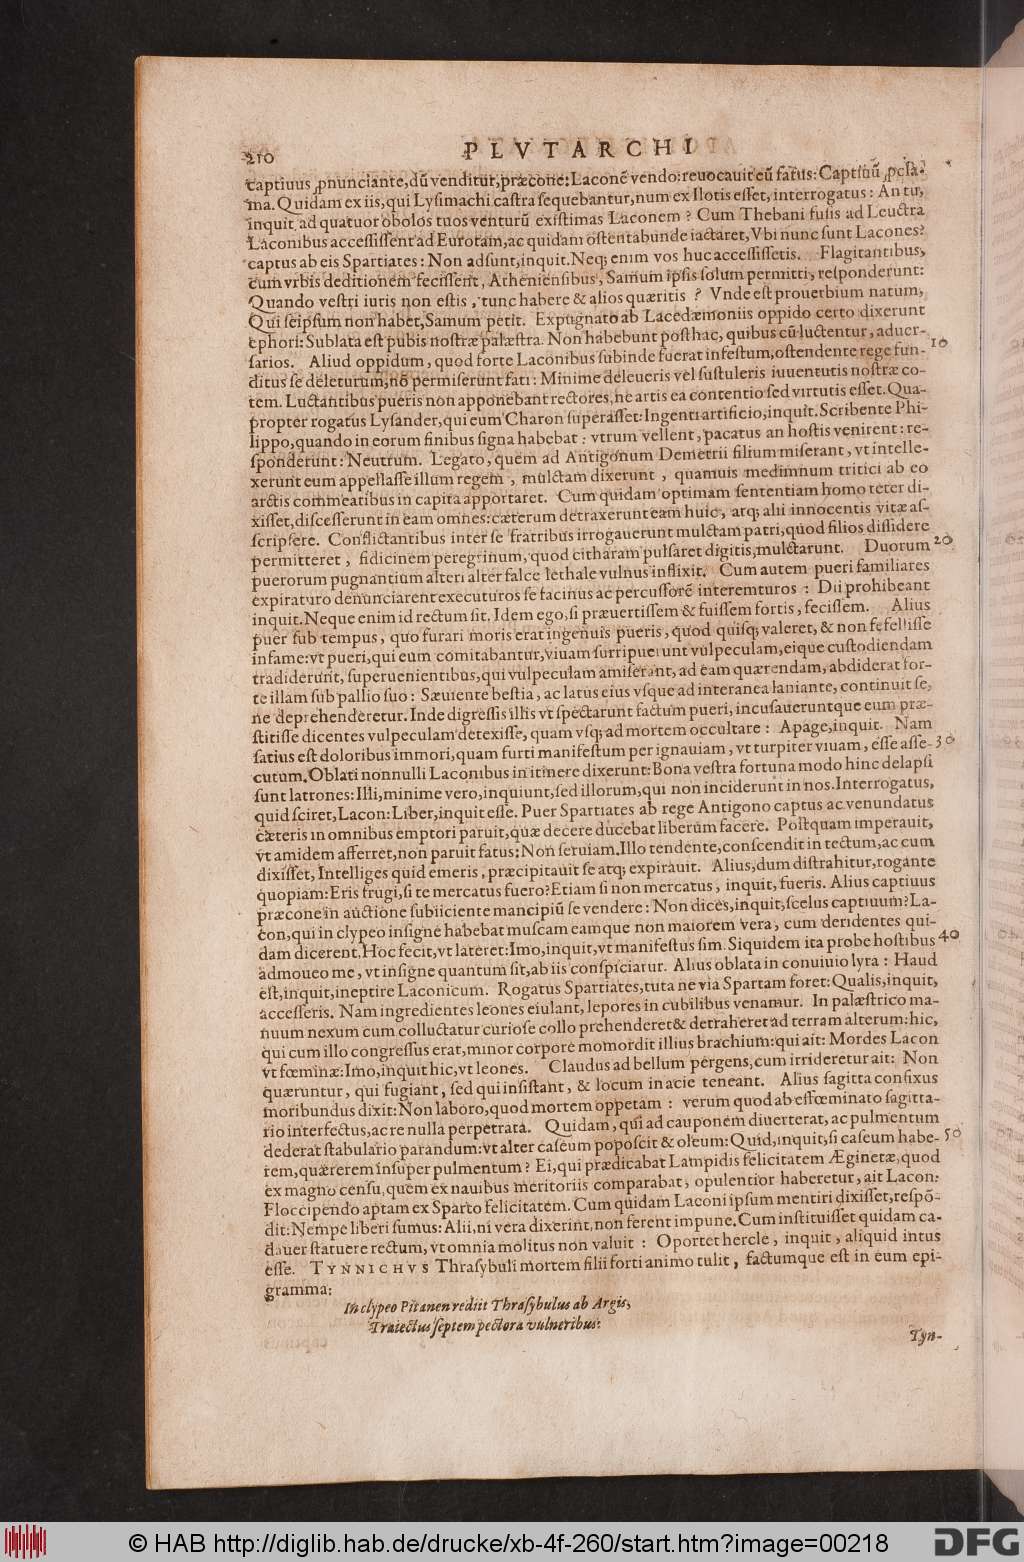 210 PLVTARCHI
captiuus ꝓnunciante, dū venditur, præcone: Laconē vendo: reuocauit eū fatus: Captiuū ꝓcla-
ma. Quidam ex iis, qui Lysimachi castra sequebantur, num ex Ilotis esset, interrogatus: An tu,
inquit, ad quatuor obolos tuos venturū existimas Laconem? Cum Thebani fusis ad Leuctra
Laconibus accessissent ad Eurotam, ac quidam ostentabunde iactaret, Vbi nunc sunt Lacones?
captus ab eis Spartiates: Non adsunt, inquit. Neq; enim vos huc accessissetis. Flagitantibus,
cum vrbis deditionem fecissent, Atheniensibus, Samum ipsis solum permitti, responderunt:
Quando vestri iuris non estis, tunc habere & alios quæritis? Vnde est prouerbium natum,
Qui seipsum non habet, Samum petit. Expugnato ab Lacedæmoniis oppido certo dixerunt
ephori: Sublata est pubis nostræ palæstra. Non habebunt posthac, quibus cū luctentur, aduer-
sarios. Aliud oppidum, quod forte Laconibus subinde fuerat infestum, ostendente rege fun- 10
ditus se deleturum, nō permiserunt fati: Minime deleueris vel sustuleris iuuentutis nostræ co-
tem. Luctantibus pueris non apponebant rectores, ne artis ea contentio sed virtutis esset. Qua-
propter rogatus Lysander, qui eum Charon superasset: Ingenti artificio, inquit. Scribente Phi-
lippo, quando in eorum finibus signa habebat: vtrum vellent, pacatus an hostis venirent: re-
sponderunt: Neutrum. Legato, quem ad Antigonum Demetrii filium miserant, vt intelle-
xerunt eum appellasse illum regem, mulctam dixerunt, quamuis medimnum tritici ab eo
arctis commeatibus in capita apportaret. Cum quidam optimam sententiam homo teter di-
xisset, discesserunt in eam omnes: cæterum detraxerunt eam huic, atq; alii innocentis vitæ as-
scripsere. Conflictantibus inter se fratribus irrogauerunt mulctam patri, quod filios dissidere
permitteret, fidicinem peregrinum, quod citharam pulsaret digitis, mulctarunt. Duorum 20
puerorum pugnantium alteri alter falce lethale vulnus inflixit. Cum autem pueri familiares
expiraturo denunciarent executuros se facinus ac percussorē interemturos: Dii prohibeant
inquit. Neque enim id rectum sit. Idem ego, si præuertissem & fuissem fortis, fecissem. Alius
puer sub tempus, quo furari moris erat ingenuis pueris, quod quisq; valeret, & non fefellisse
infame: vt pueri, qui eum comitabantur, viuam surripuerunt vulpeculam, eique custodiendam
tradiderunt, superuenientibus, qui vulpeculam amiserant, ad eam quærendam, abdiderat for-
te illam sub pallio suo: Sæuiente bestia, ac latus eius vsque ad interanea laniante, continuit se,
ne deprehenderetur. Inde digressis illis vt spectarunt factum pueri, incusaueruntque eum præ-
stitisse dicentes vulpeculam detexisse, quam vsq; ad mortem occultare: Apage, inquit. Nam
satius est doloribus immori, quam furti manifestum per ignauiam, vt turpiter viuam, esse asse- 30
cutum. Oblati nonnulli Laconibus in itinere dixerunt: Bona vestra fortuna modo hinc delapsi
sunt latrones: Illi, minime vero, inquiunt, sed illorum, qui non inciderunt in nos. Interrogatus,
quid sciret, Lacon: Liber, inquit esse. Puer Spartiates ab rege Antigono captus ac venundatus
cæteris in omnibus emptori paruit, quæ decere ducebat liberum facere. Postquam imperauit,
vt amidem afferret, non paruit fatus: Non seruiam. Illo tendente, conscendit in tectum, ac cum
dixisset, Intelliges quid emeris, præcipitauit se atq; expirauit. Alius, dum distrahitur, rogante
quopiam: Eris frugi, si te mercatus fuero? Etiam si non mercatus, inquit, fueris. Alius captiuus
præcone in auctione subiiciente mancipiū se vendere: Non dices, inquit, scelus captiuum? La-
con, qui in clypeo insigne habebat muscam eamque non maiorem vera, cum deridentes qui-
dam dicerent. Hoc fecit, vt lateret: Imo, inquit, vt manifestus sim. Siquidem ita probe hostibus 40
admoueo me, vt insigne quantum sit, ab iis conspiciatur. Alius oblata in conuiuio lyra: Haud
est, inquit, ineptire Laconicum. Rogatus Spartiates, tuta ne via Spartam foret: Qualis, inquit,
accesseris. Nam ingredientes leones eiulant, lepores in cubilibus venamur. In palæstrico ma-
nuum nexum cum colluctatur curiose collo prehenderet & detraheret ad terram alterum: hic,
qui cum illo congressus erat, minor corpore momordit illius brachium: qui ait: Mordes Lacon
vt fœminæ: Imo, inquit hic, vt leones. Claudus ad bellum pergens, cum irrideretur ait: Non
quæruntur, qui fugiant, sed qui insistant, & locum in acie teneant. Alius sagitta confixus
moribundus dixit: Non laboro, quod mortem oppetam: verum quod ab effœminato sagitta-
rio interfectus, ac re nulla perpetrata. Quidam, qui ad cauponem diuerterat, ac pulmentum
dederat stabulario parandum: vt alter caseum poposcit & oleum: Quid, inquit, si caseum habe- 50
rem, quærerem insuper pulmentum? Ei, qui prædicabat Lampidis felicitatem Æginetæ, quod
ex magno censu, quem ex nauibus meritoriis comparabat, opulentior haberetur, ait Lacon:
Floccipendo aptam ex Sparto felicitatem. Cum quidam Laconi ipsum mentiri dixisset, respō-
dit: Nempe liberi sumus: Alii, ni vera dixerint, non ferent impune. Cum instituisset quidam ca-
dauer statuere rectum, vt omnia molitus non valuit: Oportet hercle, inquit, aliquid intus
esse. TYNNICHVS Thrasybuli mortem filii forti animo tulit, factumque est in eum epi-
gramma:
In clypeo Pitanen rediit Thrasybulus ab Argis,
Traiectus septem pectora vulneribus:
Tyn-
© HAB http://diglib.hab.de/drucke/xb-4f-260/start.htm?image=00218
DFG